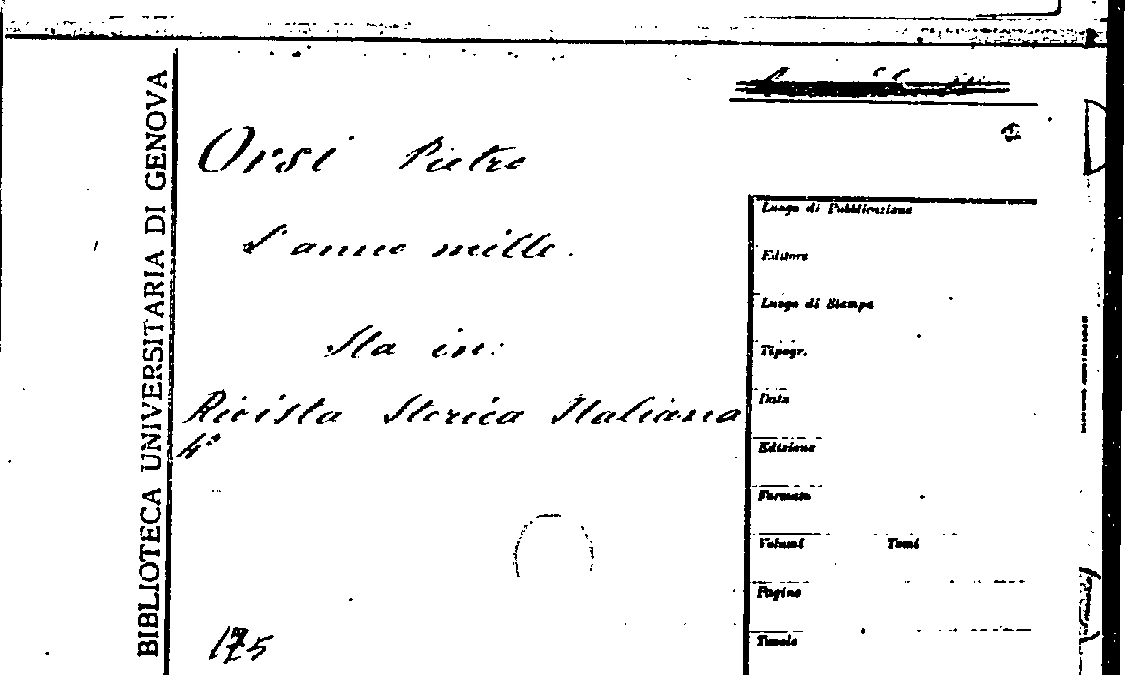 BIBLIOTECA UNIVERSITARIA DI GENOVA
Orsi Pietro
L'anno mille.
Sta in:
Rivista Storica Italiana
4°
175
Luogo di Pubblicazione
Editore
Luogo di Stampa
Tipogr.
Data
Edizione
Formato
Volumi Tomi
Pagine
Tavole